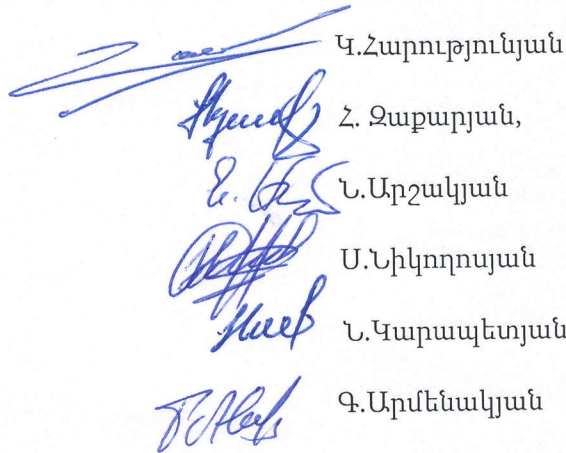 Կ.Հարությունյան
Հ. Զաքարյան,
Ն.Արշակյան
Ս.Նիկողոսյան
Ն.Կարապետյան
Գ.Արմենակյան